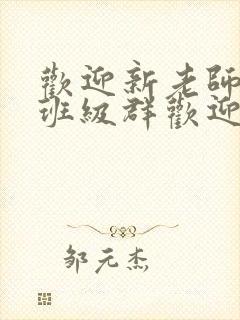 歡迎新老師
班級群歡迎
邹元杰